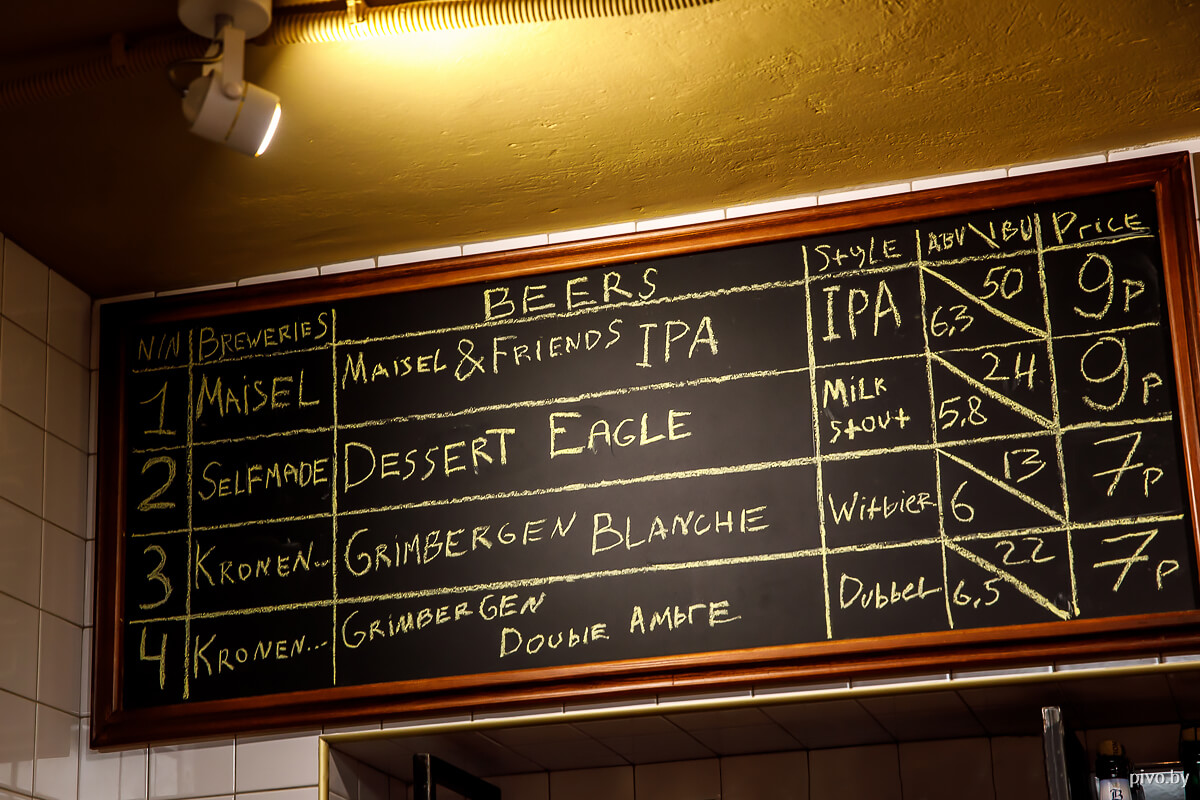 N/N BREWERIES BEERS StyLE ABV \ IBU PricE
1 MAiSEL MAiSEL & FRiENDS IPA IPA 6,3 50 9p
2 SELFMADE DESSERT EAGLE MiLK stout 5,8 24 9p
3 KRONEN.. GRiMBERGEN BLANCHE Witbier 6 13 7p
4 KRONEN... GRiMBERGEN DOUblE AMbrE Dubbel 6,5 22 7p
pivo.by